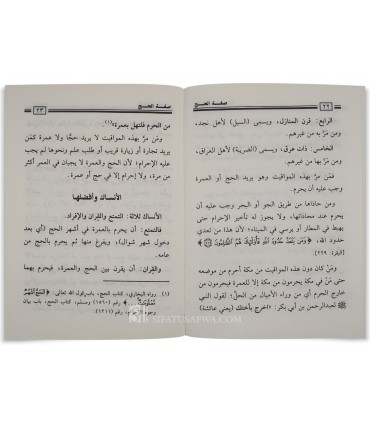 صفة الحج
٢٢
الرابع: قرن المنازل، ويسمى (السيل) لأهل نجد،
ومن مَرَّ به من غيرهم.
الخامس: ذات عرق، ويسمى (الضريبة) لأهل العراق،
ومن مَرَّ بها من غيرهم.
فمن مَرَّ بهذه المواقيت وهو يريد الحج أو العمرة
وجب عليه أن يحرم.
ومن حاذاها من طريق الجو أو البحر وجب عليه أن
يحرم عند محاذاتها، ولا يجوز له تأخير الإحرام حتى
يهبط في المطار أو يرسي في الميناء؛ لأن هذا من تعدي
حدود الله، ﴿وَمَن يَتَعَدَّ حُدُودَ اللَّهِ فَأُولَٰئِكَ هُمُ الظَّالِمُونَ﴾
[البقرة: ٢٢٩].
ومَنْ كان دون هذه المواقيت من مكة أحرم من موضعه
حتى مَنْ في مكة يحرمون من مكة إلا للعمرة فيحرم من
خارج الحرم أي من وراء الأميال من الحلّ؛ لقول النبي
ﷺ لعبدالرحمن بن أبي بكر: «اخرج بأختك (يعني عائشة)
صفة الحج
٢٣
من الحرم فلتهل بعمرة»(١).
ومَن مَرَّ بهذه المواقيت لا يريد حجًّا ولا عمرة كمن
يريد تجارة أو زيارة قريب أو طلب علم ونحوها لم يجب
عليه الإحرام؛ لأن الحج والعمرة لا يجبان في العمر أكثر
من مرة، ولا إحرام إلا في حج أو عمرة.
الأنساك وأفضلها
الأنساك ثلاثة: التمتع والقِران والإفراد.
فالتمتع: أن يحرم بالعمرة في أشهر الحج (أي بعد
دخول شهر شوال)، ويفرغ منها ثم يحرم بالحج من
عامه.
والقِران: أن يقرن بين الحج والعمرة، فيحرم بهما
(١) رواه البخاري، كتاب الحج، باب قول الله تعالى: ﴿الْحَجُّ أَشْهُرٌ
مَّعْلُومَاتٌ﴾ رقم (١٥٦٠) ومسلم، كتاب الحج، باب بيان
وجوه رقم (١٢١١).
SIFATUSAFWA.COM